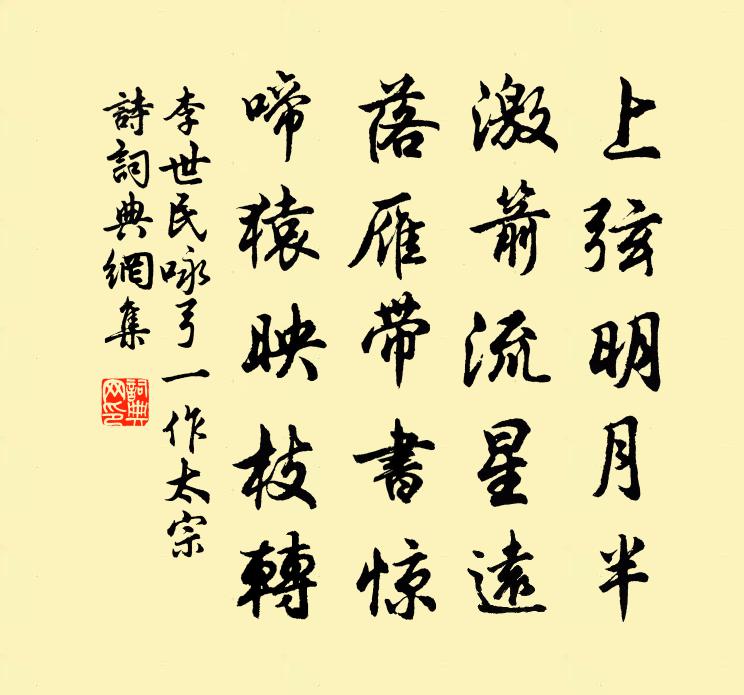 上弦明月半
激箭流星遠
落雁带書惊
啼猿映枝轉
李世民咏弓一作太宗
詩詞典網集
詞典网印